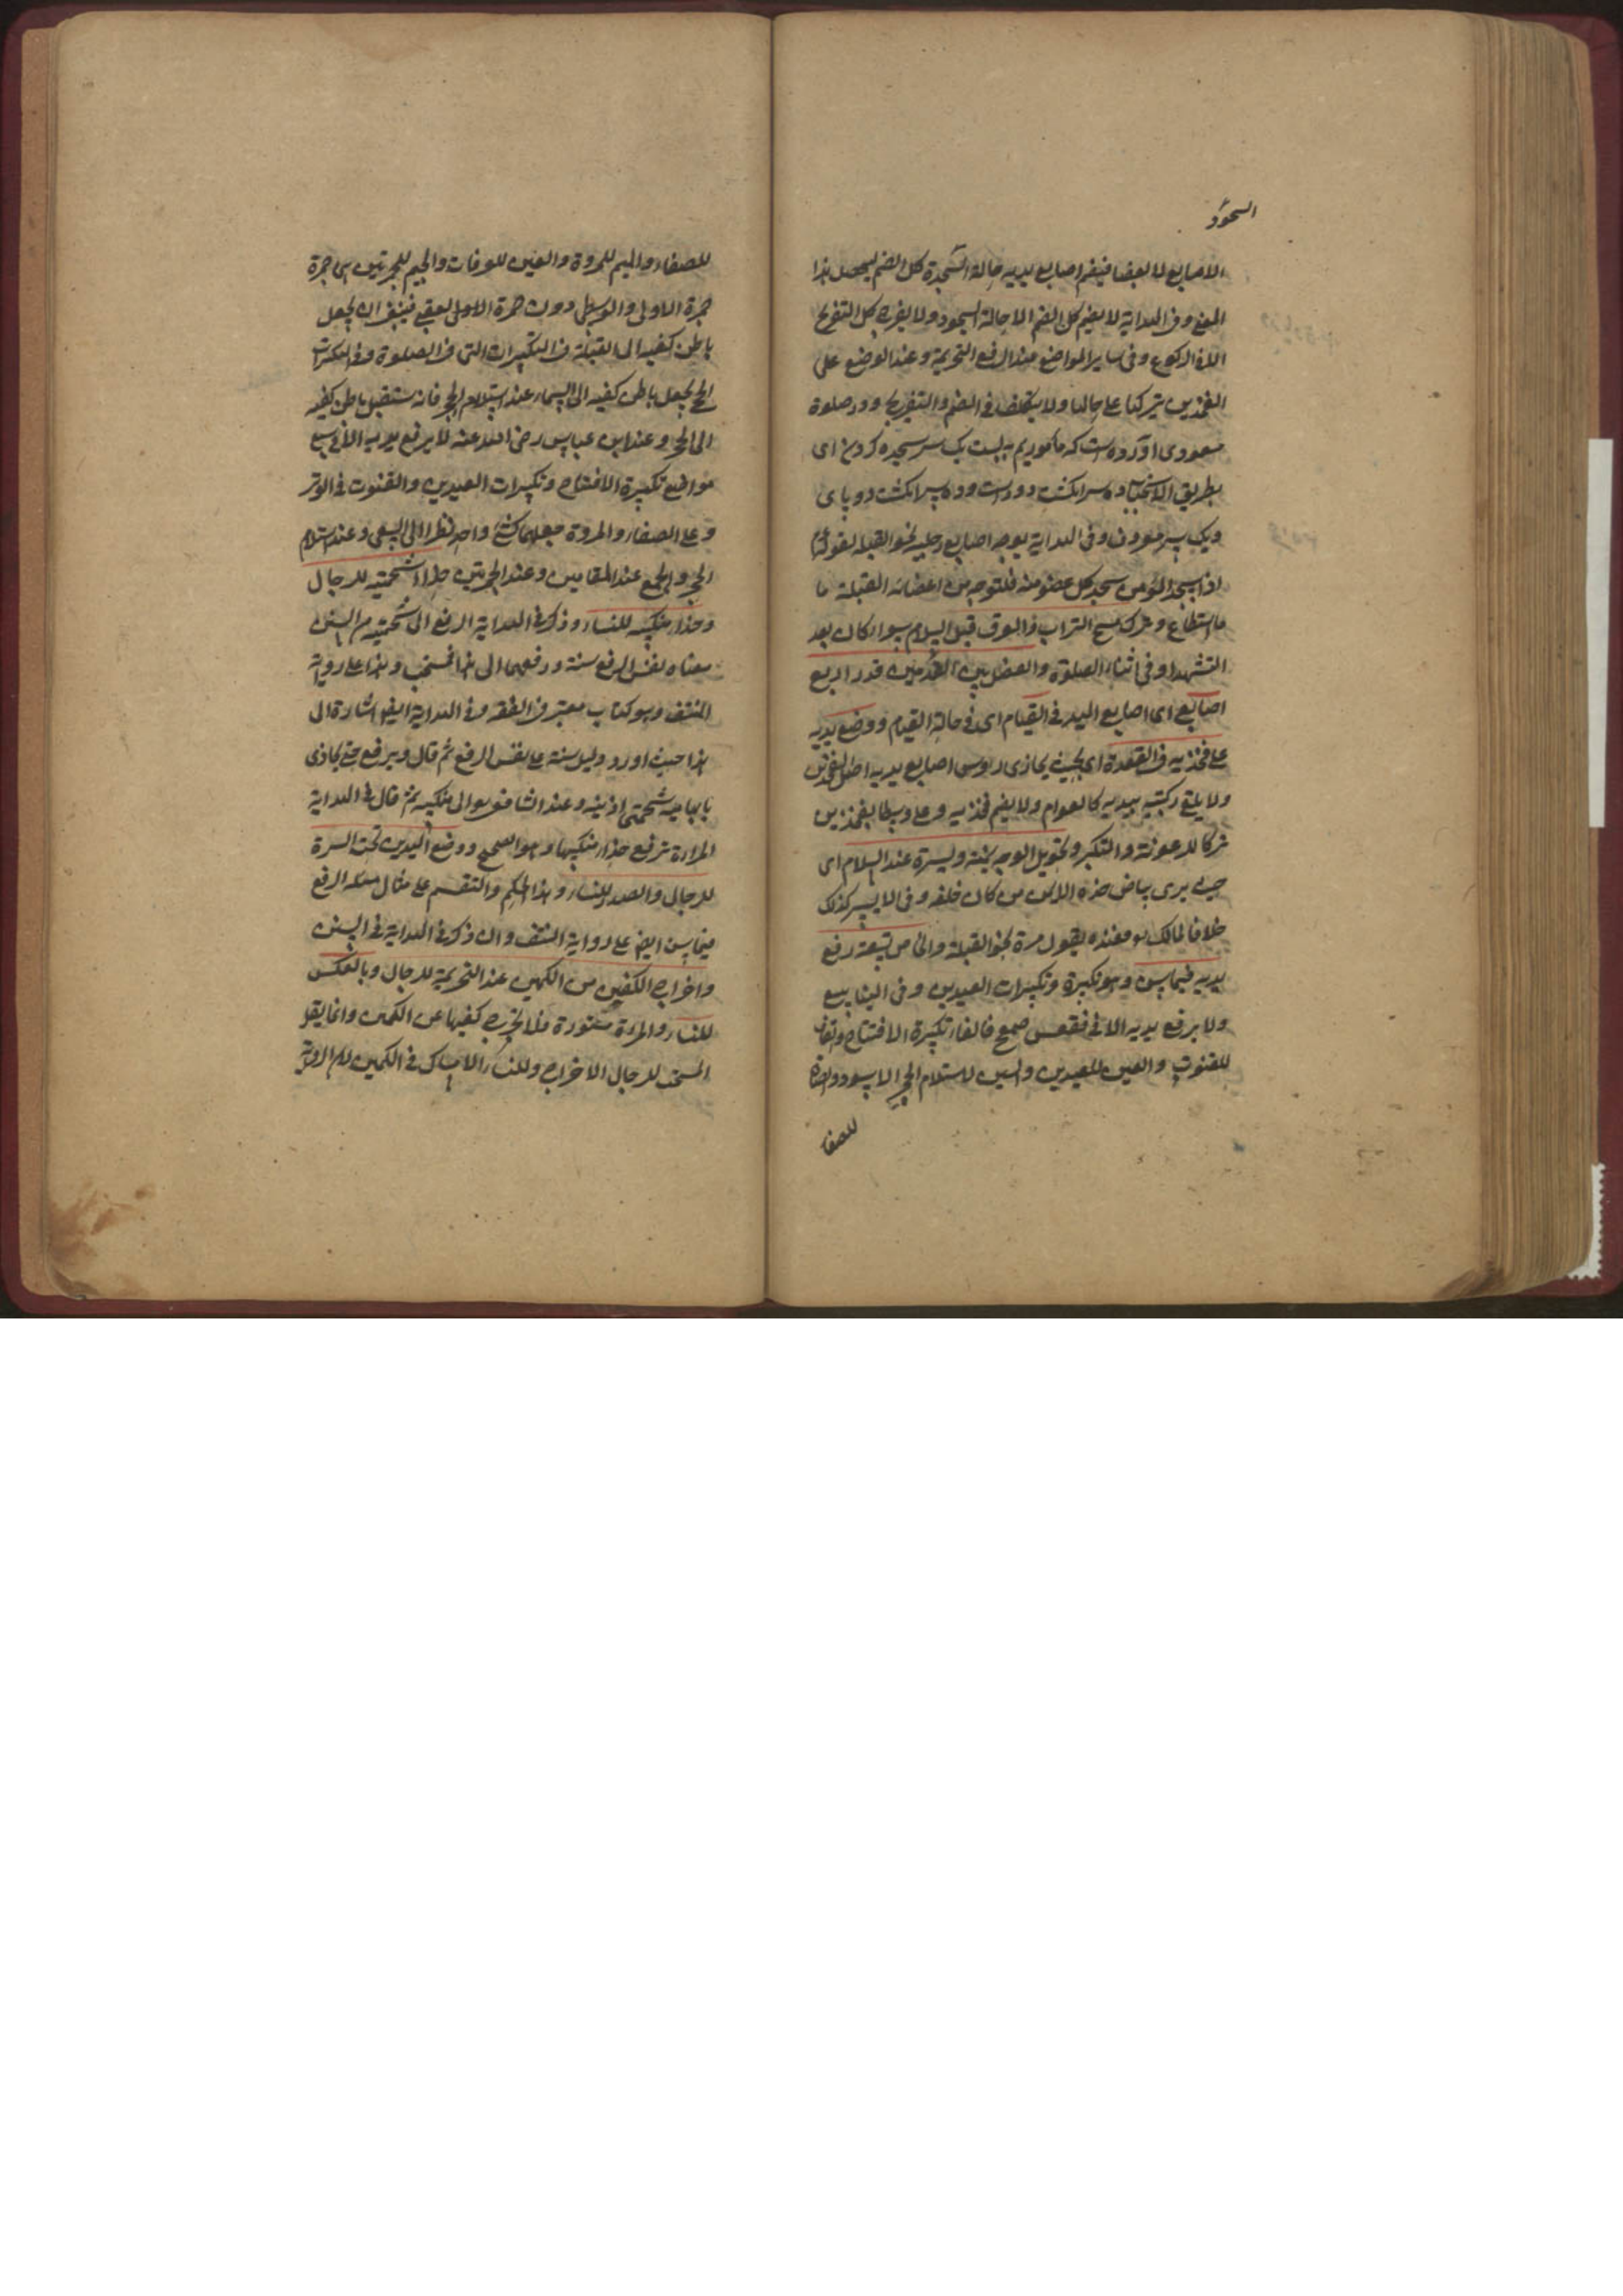 السجود
الاصابع لا بعضا فيضم اصابع يديه حالة السجدة كل الضم ليحصل هذا
المعنى وفى الهداية لا يضم كل الضم الا حالة السجود ولا يفرج كل التفريج
الا فى الركوع وفى ساير المواضع عند الرفع التحريمة وعند الوضع على
الفخذين يتركها على حالها ولا يتكلف فى الضم والتفريج ودر صلوة
مسعودى آورده است كه ماموريم به بيست يك سر سجده كردن اى
بطريق الاستحباب ده سر انكشت دو دست و ده سر انكشت دو پاى
ويك سر معروف وفى الهداية يوجه اصابع رجليه نحو القبلة لقوله
اذا سجد المؤمن سجد كل عضو منه فليتوجه من اعضائه القبلة ما
ما استطاع وترك مسح التراب والعرق قبل السلام سواء كان بعد
التشهد او فى اثناء الصلوة والفصل بين القدمين قدر اربع
اصابع اى اصابع اليد فى القيام اى فى حالة القيام ووضع يديه
على فخذيه فى القعدة اى بحيث يحاذى رءوس اصابع يديه
ولا يلقم ركبتيه بيديه كالعوام ولا يضم فخذيه
تركا للرعونة والتكبر وتحويل الوجه يمنة ويسرة عند السلام اى
حيث يرى بياض خده الايمن من كان خلفه وفى الايسر كذلك
خلافا لمالك فعنده يقول مرة نحو القبلة رفع
يديه فيما سن وهو تكبيرة وتكبيرات العيدين وفى الينابيع
ولا يرفع يديه الا فى فقعس صمعج فالفاء تكبيرة الافتتاح والقاف
للقنوت والعين للعيدين والسين لاستلام الحجر الاسود والصاد
للصفا
للصفاء والميم للمروة والعين للعرفات والجيم للجمرتين اى جمرة
جمرة الاولى والوسطى دون جمرة الاولى العقبى فينبغى ان يجعل
باطن كفيه الى القبلة فى التكبيرات التى فى الصلوة وفى تكبيرات
الحج يجعل باطن كفيه الى السماء عند استلام الحجر فانه يستقبل باطن كفيه
الى الحجر وعند ابن عباس رضى الله عنه لا يرفع يديه الا فى سبع
مواضع تكبيرة الافتتاح وتكبيرات العيدين والقنوت فى الوتر
وعلى الصفاء والمروة جعلهما كشئ واحد نظرا الى السعى وعند استلام
الحجر والجمع عند المقامين وعند الجمرتين حذاء شحمتيه للرجال
وحذاء منكبيه للنساء وذكر فى الهداية الرفع الى شحمتيه من السنن
معناه نفس الرفع سنة ورفعهما الى هنا مستحب وهذا على رواية
المتفق وهو كتاب معتبر فى الفقه وفى الهداية ايضا اشارة الى
هذا حيث اورد دليل سنة على نفس الرفع ثم قال ويرفع حتى يحاذى
بابهاميه شحمتى اذنيه وعند الشافعى الى منكبيه ثم قال فى الهداية
المراءة ترفع حذاء منكبيها وهو الصحيح ووضع اليدين تحت السرة
للرجال والصدر للنساء وهذا الحكم على مثال الرفع
فيما سن ايضا على رواية المتفق وان ذكر فى الهداية فى السنن
واخراج الكفين من الكمين عند التحريمة للرجال وبالعكس
للنساء والمراة مستورة فلا تخرج كفيها عن الكمين وانما يقل
المستحب للرجال الاخراج وللنساء الامساك فى الكمين